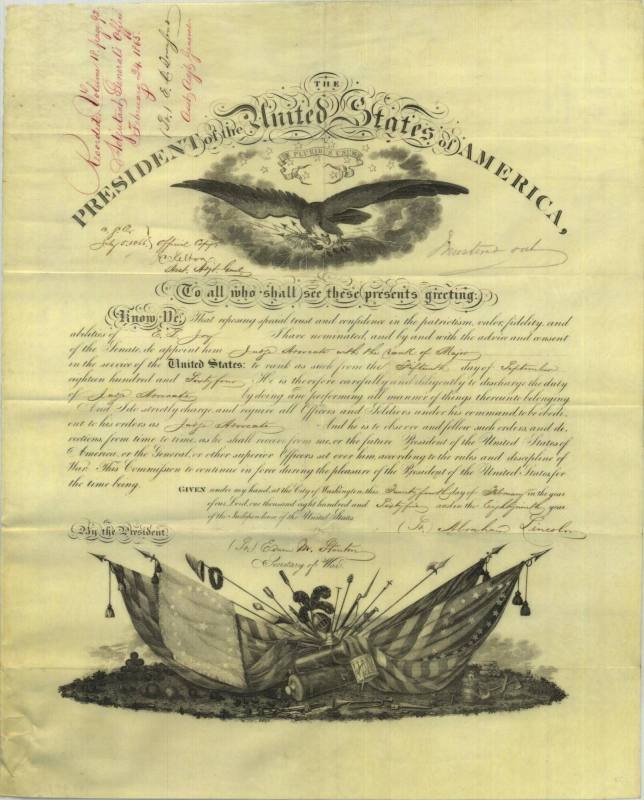 Recorded Volume
Adjutant General's Office
February 24th 1865.
(Sd.) E. D. Townsend
Asst. Adjt. General
THE
PRESIDENT of the United States of AMERICA,
E PLURIBUS UNUM
Official Copy
Asst. Adjt. Genl.
Mustered out
To all who shall see these presents greeting:
Know Ye, That reposing special trust and confidence in the patriotism, valor, fidelity, and
abilities of E. Joy I have nominated, and by and with the advice and consent
of the Senate, do appoint him Judge Advocate with the rank of Major
in the service of the United States: to rank as such from the fifteenth day of September
eighteen hundred and Sixty four. He is therefore carefully and diligently to discharge the duty
of Judge Advocate by doing and performing all manner of things thereunto belonging.
And I do strictly charge, and require all Officers and Soldiers under his command to be obedi-
ent to his orders as Judge Advocate And he is to observe and follow such orders, and di-
rections from time to time, as he shall receive from me, or the future President of the United States of
America, or the General, or other superior Officers set over him, according to the rules and discipline of
War. This Commission to continue in force during the pleasure of the President of the United States for
the time being.
GIVEN under my hand, at the City of Washington, this Twenty fourth day of February in the year
of our Lord, one thousand eight hundred and Sixty five and in the Eighty ninth year
of the Independence of the United States.
By the President (Sd.) Abraham Lincoln
(Sd.) Edwin M. Stanton
Secretary of War.